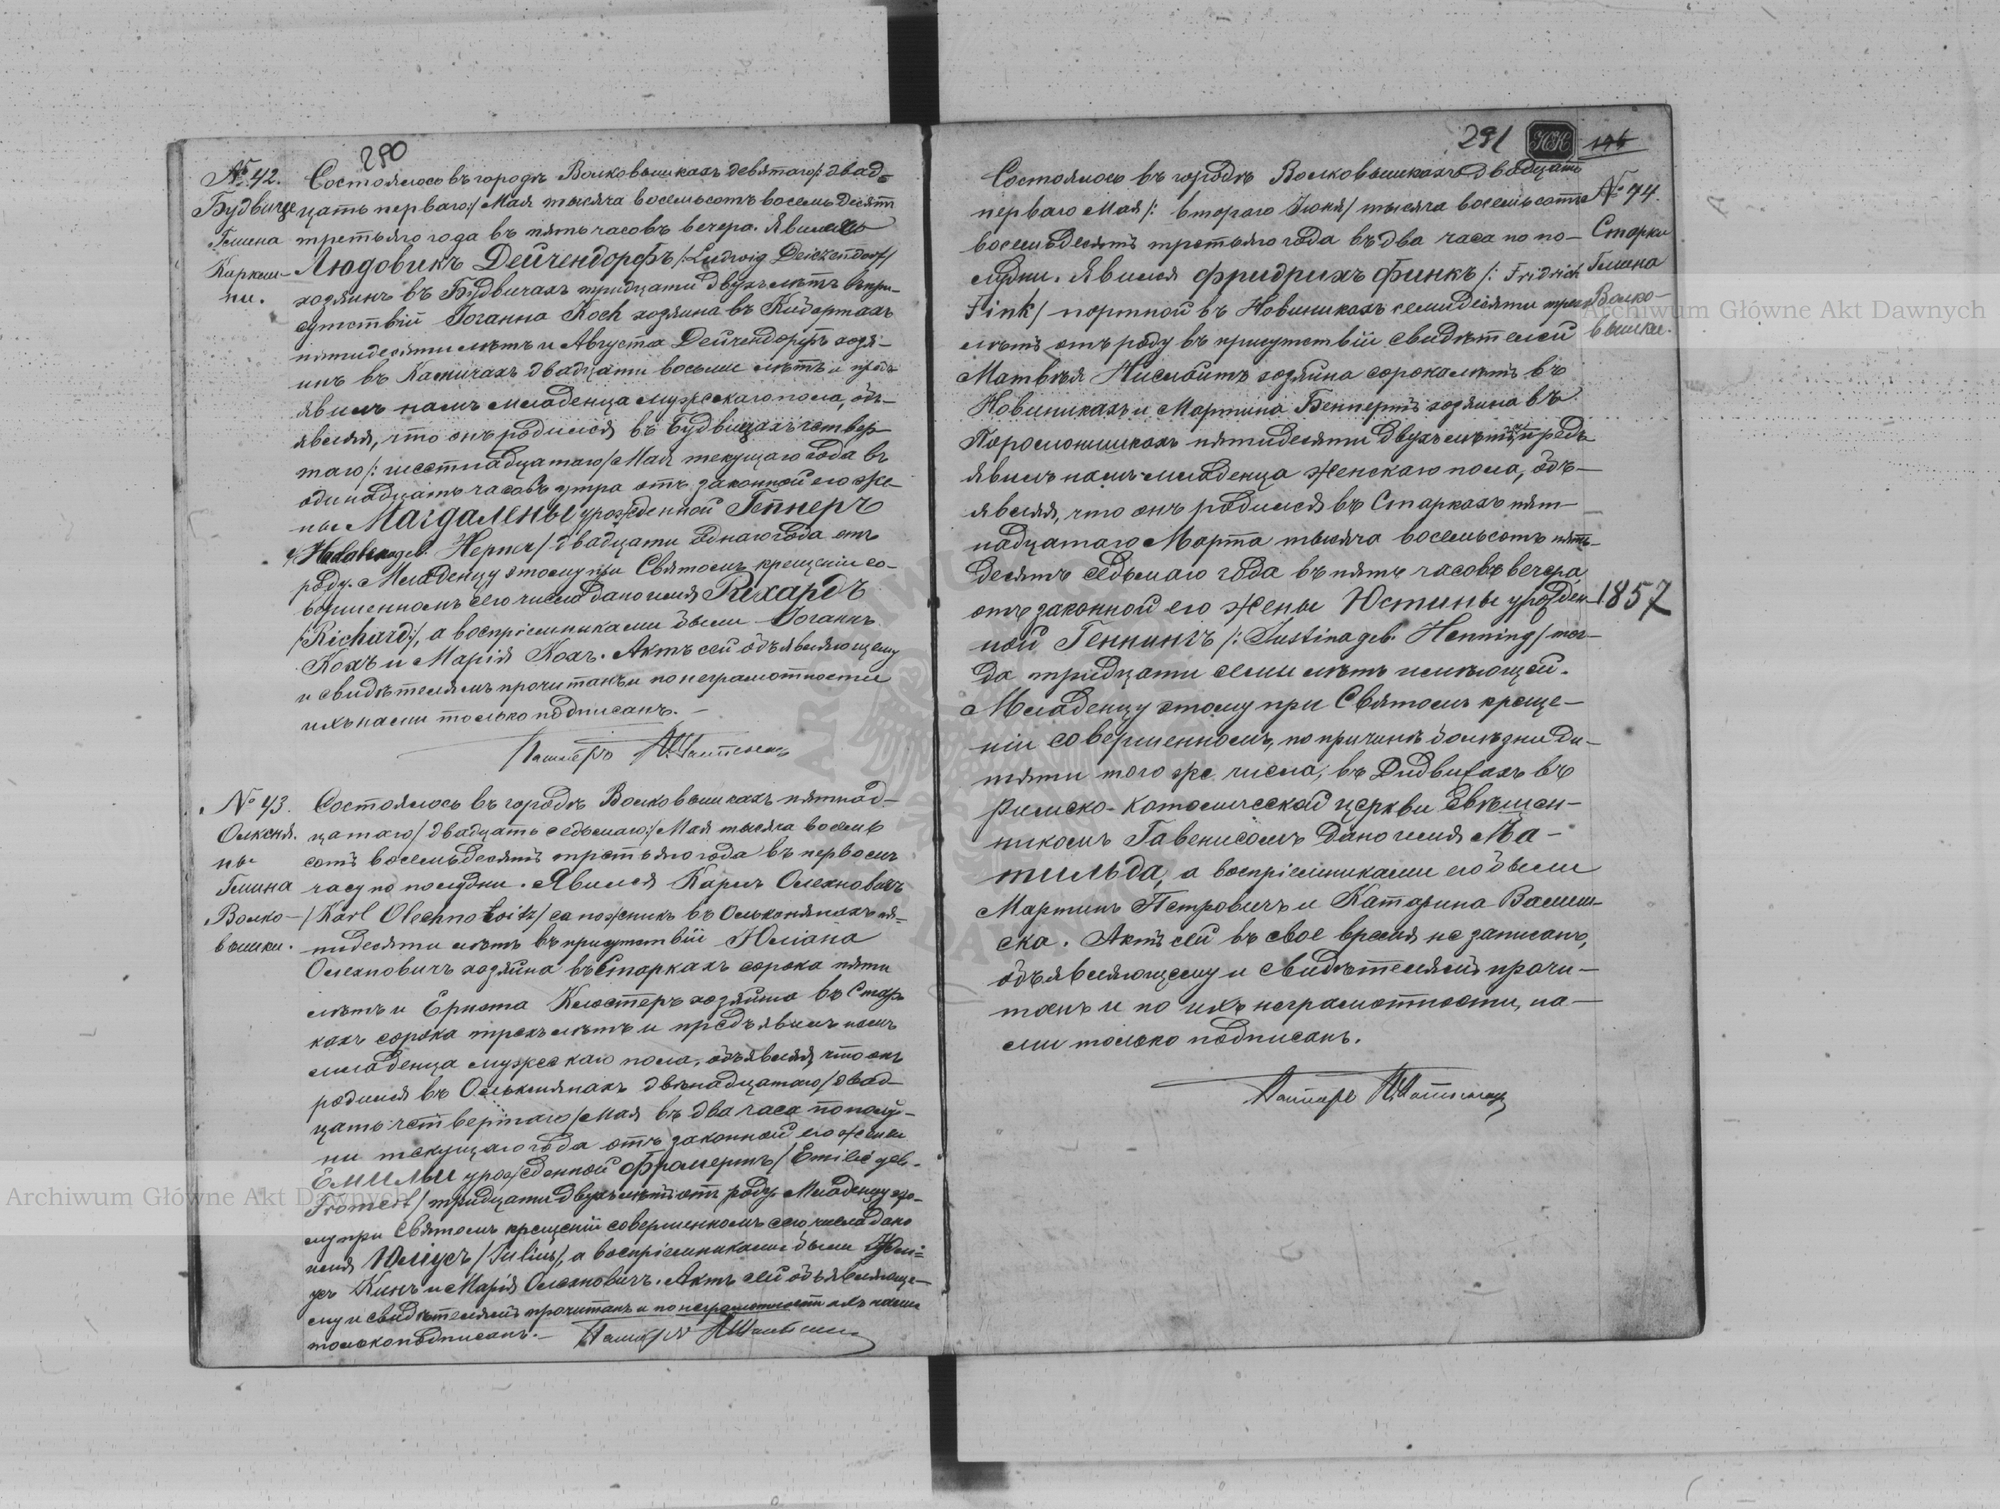 290
№ 42.
Будвице
Гмина
Каркли-
ни.
Состоялось въ городѣ Волковышкахъ девятаго/: двад-
цать перваго:/ Мая тысяча восемьсотъ восемьдесятъ
третьяго года въ пять часовъ вечера. Явился
Людовикъ Дейчендорфъ /:Ludwig Deiczendorf/
хозяинъ въ Будвичахъ тридцати двухъ лѣтъ въ при-
сутствіи Іоганна Koch хозяина въ
пятидесяти лѣтъ и Августа Дейчендорфъ хозя-
инъ въ двадцати восьми лѣтъ и предъ-
явилъ намъ младенца мужескаго пола, объ-
являя, что онъ родился въ Будвицахъ четвер-
таго/: шестнадцатаго/ Мая текущаго года въ
одинадцать часовъ утра отъ законной его же-
ны Магдалены урожденной Геппнеръ
двадцати однаго года отъ
роду. Младенцу этому при Святомъ крещеніи со-
вершенномъ сего числа дано имя Рихардъ
/Richard/, а воспріемниками были Іоганнъ
Кохъ и Марія Кохъ. Актъ сей объявляющему
и свидѣтелямъ прочитанъ и по неграмотности
ихъ нами только подписанъ. –
Пасторъ
№ 43.
Олкеня-
ны
Гмина
Волко-
вышки.
Состоялось въ городѣ Волковышкахъ пятнад-
цатаго/ двадцать седьмаго:/ Мая тысяча восемь
сотъ восемьдесятъ третьяго года въ первомъ
часу по полудни. Явился Карлъ Олехновичъ
/Karl Olechnowitz/ сапожникъ въ пя-
тидесяти лѣтъ въ присутствіи Юліана
Олехновичъ хозяина въ Старкахъ сорока пяти
лѣтъ и Ернста Клюстеръ хозяина въ Стар-
кахъ сорока трехъ лѣтъ и предъявилъ намъ
младенца мужескаго пола, объявляя, что онъ
родился въ двѣнадцатаго/двад-
цать четвертаго/ Мая въ два часа по полу-
ни текущаго года отъ законной его жены
Емиліи урожденной Фромертъ /Emilie geb.
Fromert/ тридцати двухъ лѣтъ отъ роду. Младенцу это-
му при Святомъ крещеніи совершенномъ сего числа дано
имя Юліусъ /Julius/, а воспріемниками были Юлі-
усъ Кинъ и Марія Олехновичъ. Актъ сей объявляюще-
му и свидѣтелямъ прочитанъ и по неграмотности ихъ нами
только подписанъ. – Пасторъ
291
НК
Состоялось въ городѣ Волковышкахъ двадцать
перваго Мая/: втораго Іюня/ тысяча восемьсотъ
восемьдесятъ третьяго года въ два часа по по-
лудни. Явился Фридрихъ Финкъ /: Fridrich
Fink/ портной въ Новиникахъ семидесяти трехъ
лѣтъ отъ роду въ присутствіи свидѣтелей
Матвѣя хозяина сорока лѣтъ въ
Новиникахъ и Мартина Беннертъ хозяина въ
пятидесяти двухъ лѣтъ и предъ-
явилъ намъ младенца женскаго пола, объ-
являя, что онъ родился въ Старкахъ пят-
надцатаго Марта тысяча восемьсотъ пять-
десятъ седьмаго года въ пять часовъ вечера,
отъ законной его жены Юстины урожден-
ной Геннингъ /: Justina geb. Henning/ тог-
да тридцати семи лѣтъ имѣющей.
Младенцу этому при Святомъ креще-
ніи совершенномъ, по причинѣ болѣзни ди-
тяти того же числа, въ въ
Римско-Католической церкви Священ-
никомъ Гавенисомъ дано имя Ма-
тильда, а воспріемниками его были
Мартинъ Петровичъ и Катарина
ска. Актъ сей въ свое время не записанъ,
объявляющему и свидѣтелямъ прочи-
танъ и по ихъ неграмотности, на-
ми только подписанъ.
Пасторъ
№ 74.
Старки
Гмина
Волко-
вышки.
1857
Archiwum Główne Akt Dawnych
Archiwum Główne Akt Dawnych